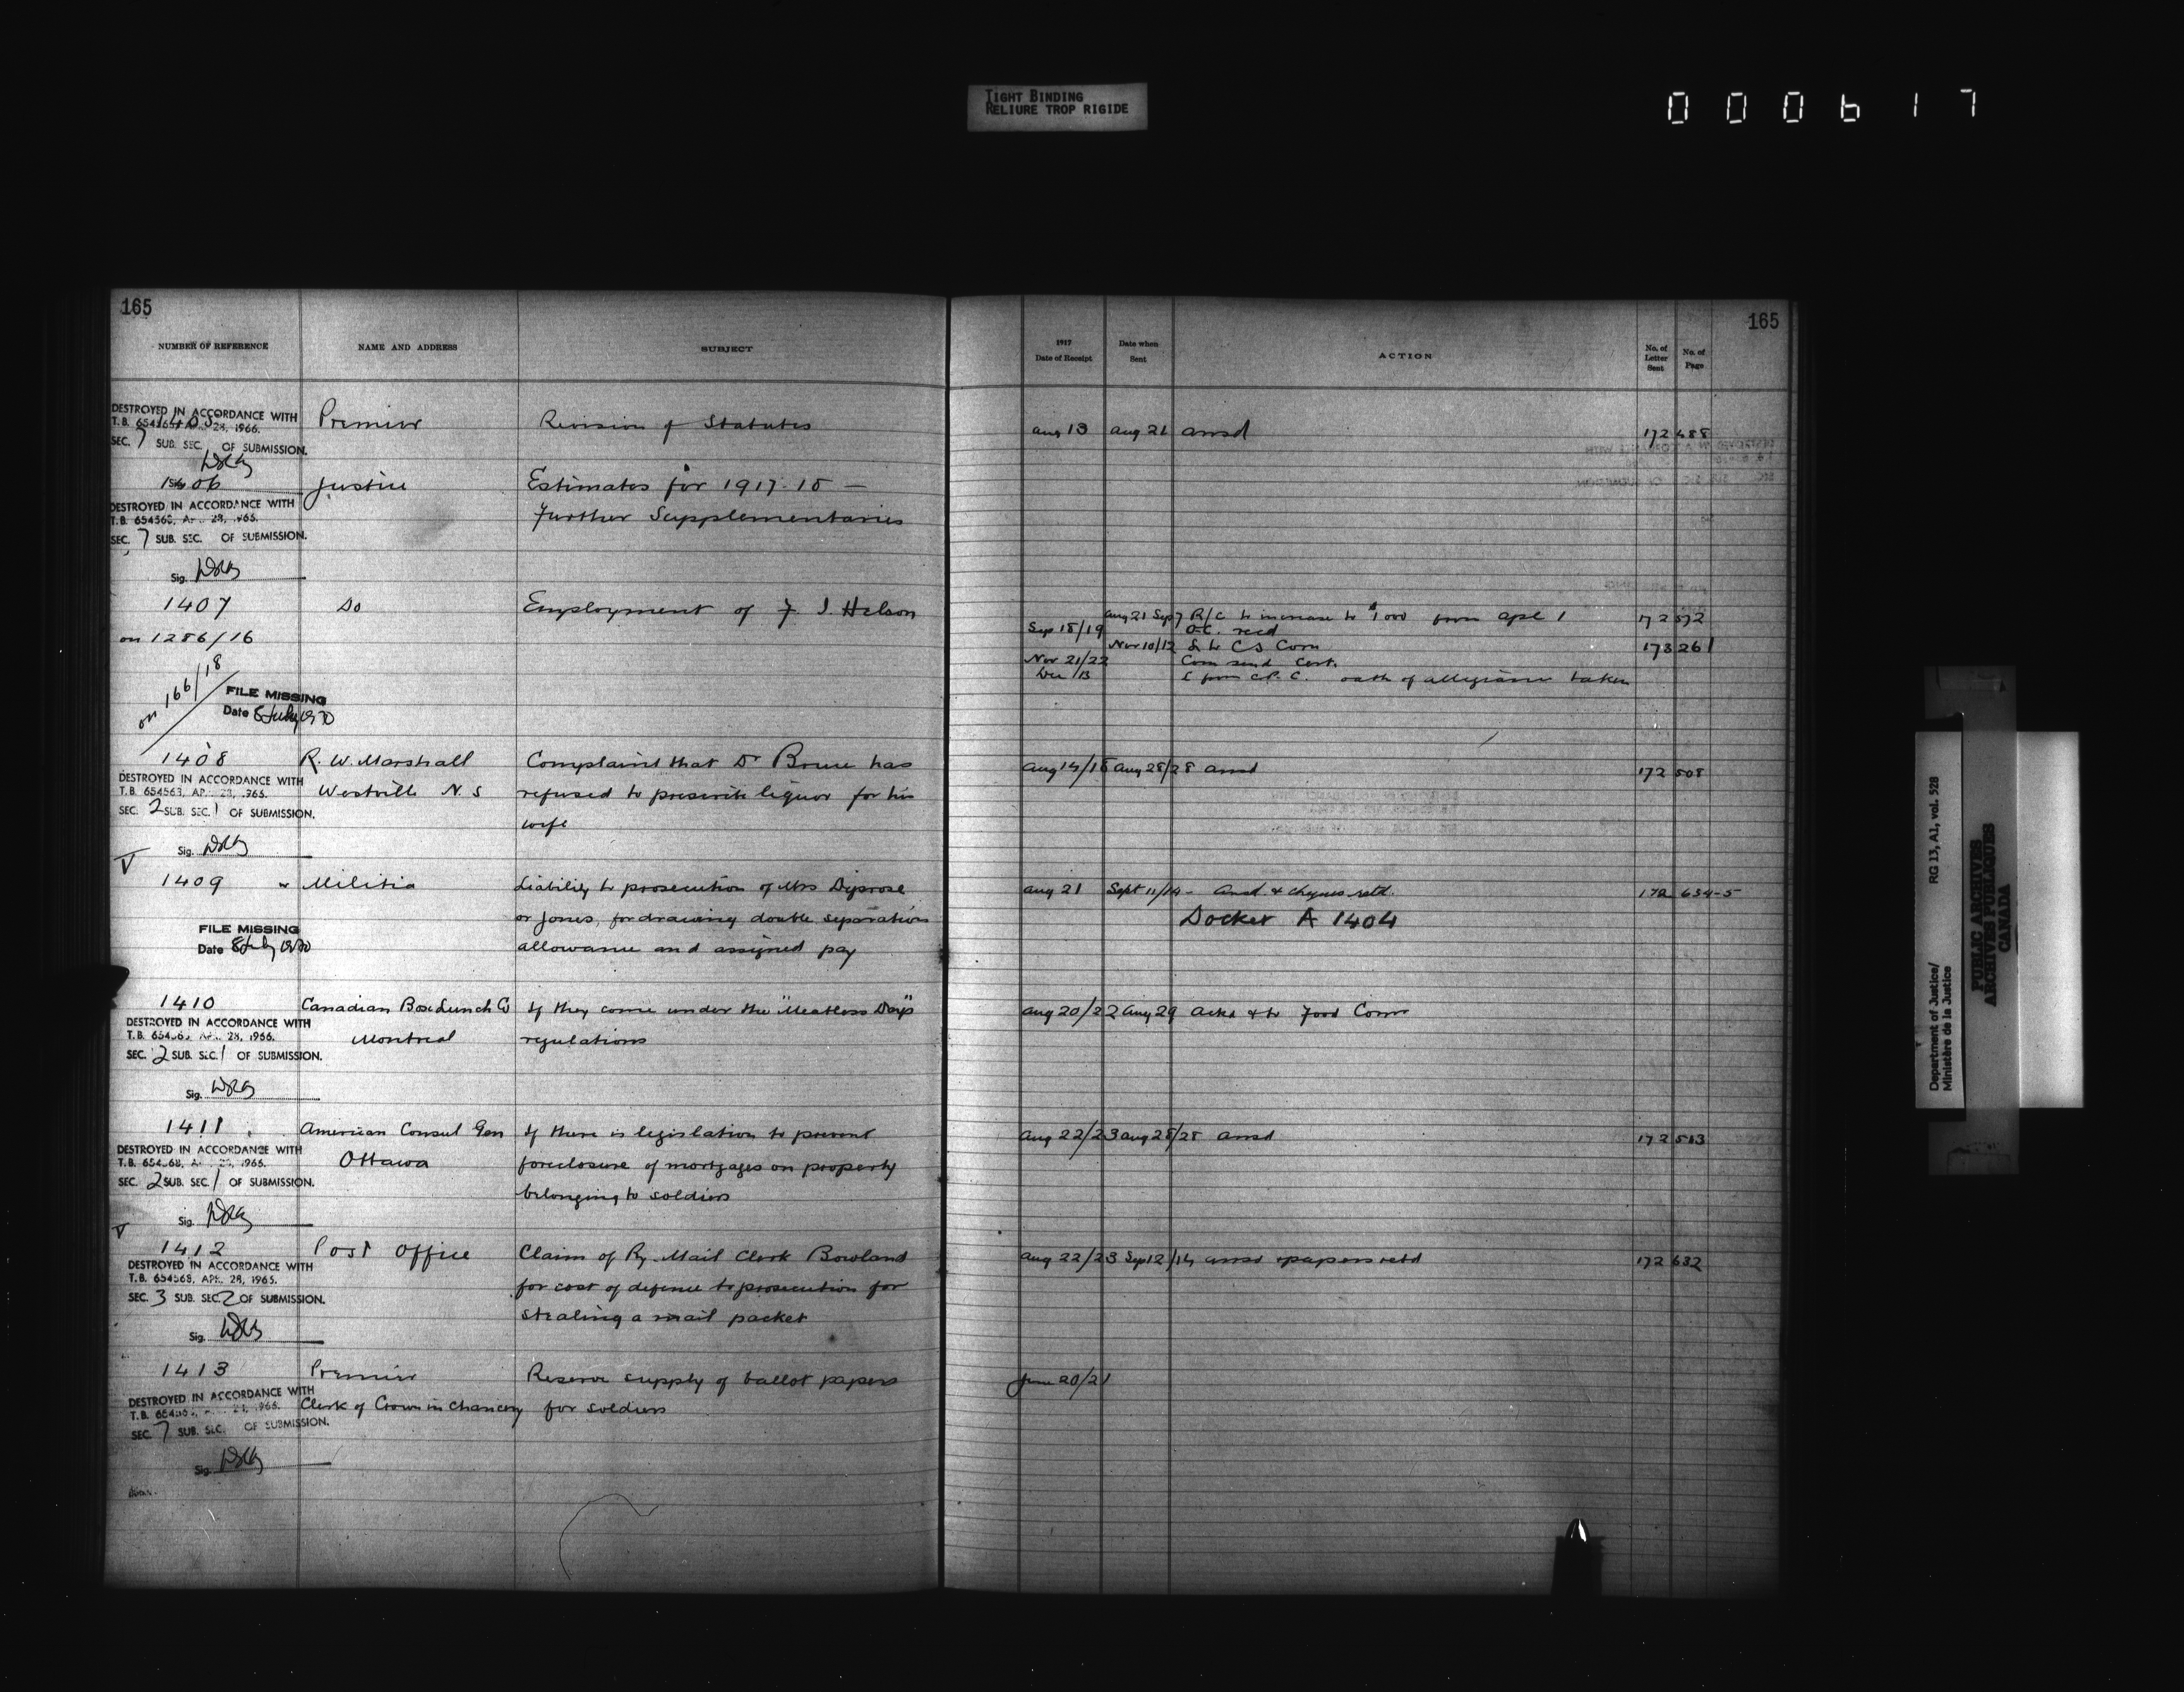 TIGHT BINDING
RELIURE TROP RIGIDE
000617
165
NUMBER OF REFERENCE NAME AND ADDRESS SUBJECT
DESTROYED IN ACCORDANCE WITH
T.B. 1405 28, 1966.
SEC. 7 SUB. SEC. OF SUBMISSION.
Premier Revision of Statutes
1406 Justice Estimates for 1917-18 —
Further Supplementaries
DESTROYED IN ACCORDANCE WITH
T.B. 654568, 28, 1965.
SEC. 7 SUB. SEC. OF SUBMISSION.
Sig.
1407 Do Employment of F. J. Helson
on 1286/16
on 166/18
FILE MISSING
Date 8 July 1970
1408 R. W. Marshall Complaint that Dr Bruce has
Westville N. S refused to prescribe liquor for his
wife
DESTROYED IN ACCORDANCE WITH
T.B. 654563, AP 28, 1965.
SEC. 2 SUB. SEC. 1 OF SUBMISSION.
Sig.
V
1409 Militia Liability to prosecution of Mrs Diprose
or Jones, for drawing double separation
allowance and assigned pay
FILE MISSING
Date 8 July 1970
1410 Canadian Box Lunch Co If they come under the "Meatless Days"
Montreal regulations
DESTROYED IN ACCORDANCE WITH
T.B. 28, 1966.
SEC. 2 SUB. SEC. 1 OF SUBMISSION.
Sig.
1411 American Consul Gen If there is legislation to prevent
Ottawa foreclosure of mortgages on property
belonging to soldiers
DESTROYED IN ACCORDANCE WITH
T.B. 1965.
SEC. 2 SUB. SEC. 1 OF SUBMISSION.
Sig.
V
1412 Post Office Claim of Ry Mail Clerk Bowland
for cost of defence to prosecution for
stealing a mail packet
DESTROYED IN ACCORDANCE WITH
T.B. 654568, APR. 28, 1965.
SEC. 3 SUB. SEC. 2 OF SUBMISSION.
Sig.
1413 Premier Reserve supply of ballot papers
Clerk of Crown in Chancery for soldiers
DESTROYED IN ACCORDANCE WITH
T.B. 1965.
SEC. 7 SUB. SEC. OF SUBMISSION.
Sig.
165
1917 Date of Receipt Date when Sent ACTION No. of Letter Sent No. of Page
Aug 13 Aug 21 ansd 172 488
Aug 21 Sep 7 R/C to increase to $1000 from Apl 1 172 572
Sep 18/19 O.C. recd
Nov 10/12 L to C S Com 173 261
Nov 21/22 Com send Cert.
Dec /13 L from C.P.C. oath of allegiance taken
Aug 14/18 Aug 28/28 ansd 172 508
Aug 21 Sept 11/14 - Ansd & cheques retd. 172 634-5
Docket A 1404
Aug 20/22 Aug 29 Ackd & to Food Comr
Aug 22/23 Aug 28/28 ansd 172 513
Aug 22/23 Sep 12/14 ansd & papers retd 172 632
June 20/21
RG 13, A1, vol. 528
Department of Justice/
Ministère de la Justice
PUBLIC ARCHIVES
ARCHIVES PUBLIQUES
CANADA